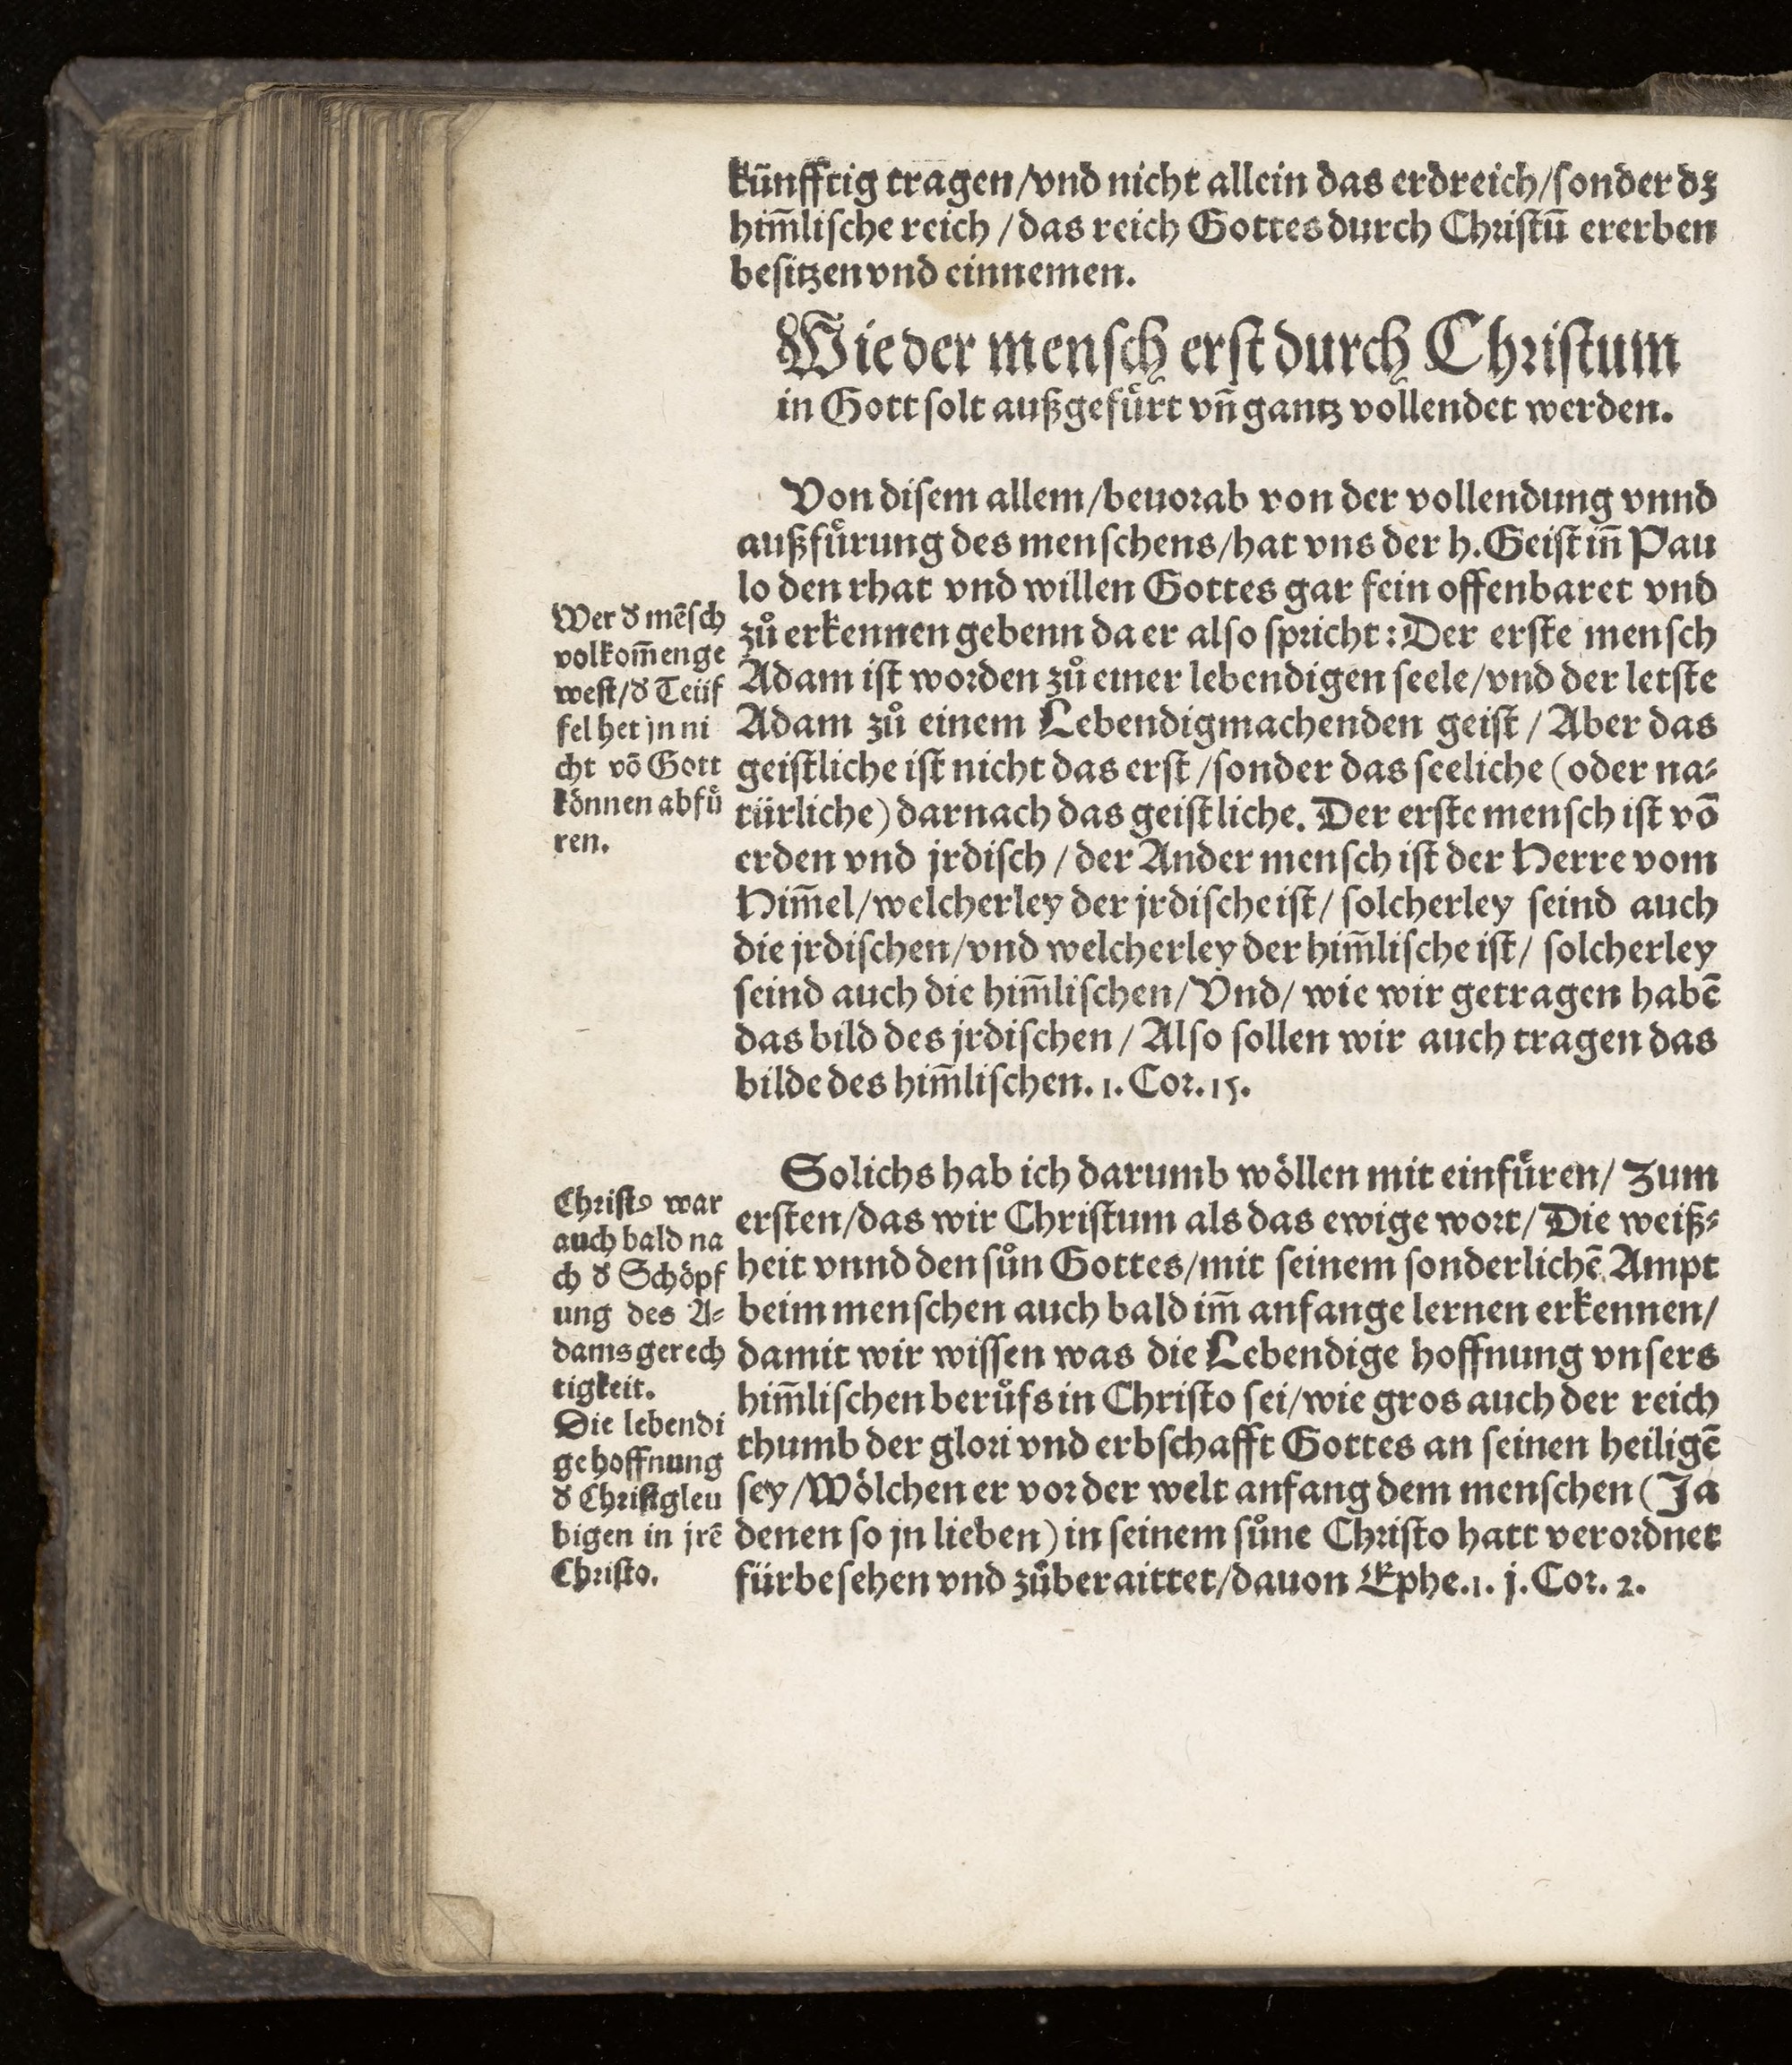 künfftig tragen/vnd nicht allein das erdreich/sonder dz
him̄lische reich/das reich Gottes durch Christū ererben
besitzen vnd einnemen.
Wie der mensch erst durch Christum
in Gott solt außgefuͤrt vn̄ gantz vollendet werden.
Von disem allem/beuorab von der vollendung vnnd
außfuͤrung des menschens/hat vns der h. Geist in̄ Pau
lo den rhat vnd willen Gottes gar fein offenbaret vnd
zuͦ erkennen gebenn da er also spricht: Der erste mensch
Adam ist worden zuͦ einer lebendigen seele/vnd der letste
Adam zuͦ einem Lebendigmachenden geist/Aber das
geistliche ist nicht das erst/sonder das seeliche (oder na⸗
türliche) darnach das geistliche. Der erste mensch ist vō
erden vnd jrdisch/der Ander mensch ist der Herre vom
Him̄el/welcherley der jrdische ist/solcherley seind auch
die jrdischen/vnd welcherley der him̄lische ist/solcherley
seind auch die him̄lischen/Vnd/wie wir getragen habē
das bild des jrdischen/Also sollen wir auch tragen das
bilde des him̄lischen. 1. Cor. 15.
Wer d̓ mēsch
volkom̄en ge
west/d̓ Teüf
fel het jn ni
cht vō Gott
koͤnnen abfuͤ
ren.
Solichs hab ich darumb woͤllen mit einfuͤren/Zum
ersten/das wir Christum als das ewige wort/Die weiß⸗
heit vnnd den suͦn Gottes/mit seinem sonderlichē Ampt
beim menschen auch bald im̄ anfange lernen erkennen/
damit wir wissen was die Lebendige hoffnung vnsers
him̄lischen beruͦfs in Christo sei/wie gros auch der reich
thumb der glori vnd erbschafft Gottes an seinen heiligē
sey/Woͤlchen er vor der welt anfang dem menschen (Ja
denen so jn lieben) in seinem suͦne Christo hatt verordnet
fürbesehen vnd zuͦberaittet/dauon Ephe. 1. j. Cor. 2.
Christꝰ war
auch bald na
ch d̓ Schoͤpf
ung des A⸗
dams gerech
tigkeit.
Die lebendi
ge hoffnung
d̓ Christgleu
bigen in jrē
Christo.